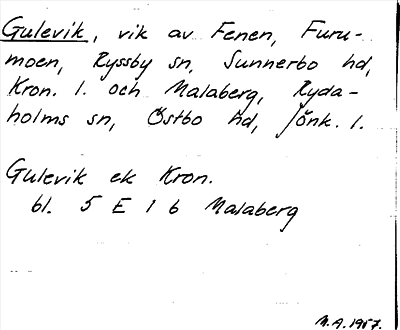 Gulevik, vik av Fenen, Furu-
moen, Ryssby sn, Sunnerbo hd,
Kron. l. och Malaberg, Ryda-
holms sn, Östbo hd, Jönk. l.
Gulevik ek Kron.
bl. 5 E 1 b Malaberg
M.A. 1957.